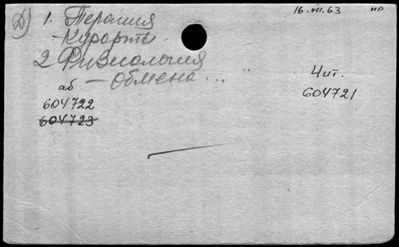 Д 1. Терапия 16.VII.63 НР
- Курорты.
2 Физиология
- обмена...
аб Чит.
604722 604721
604723